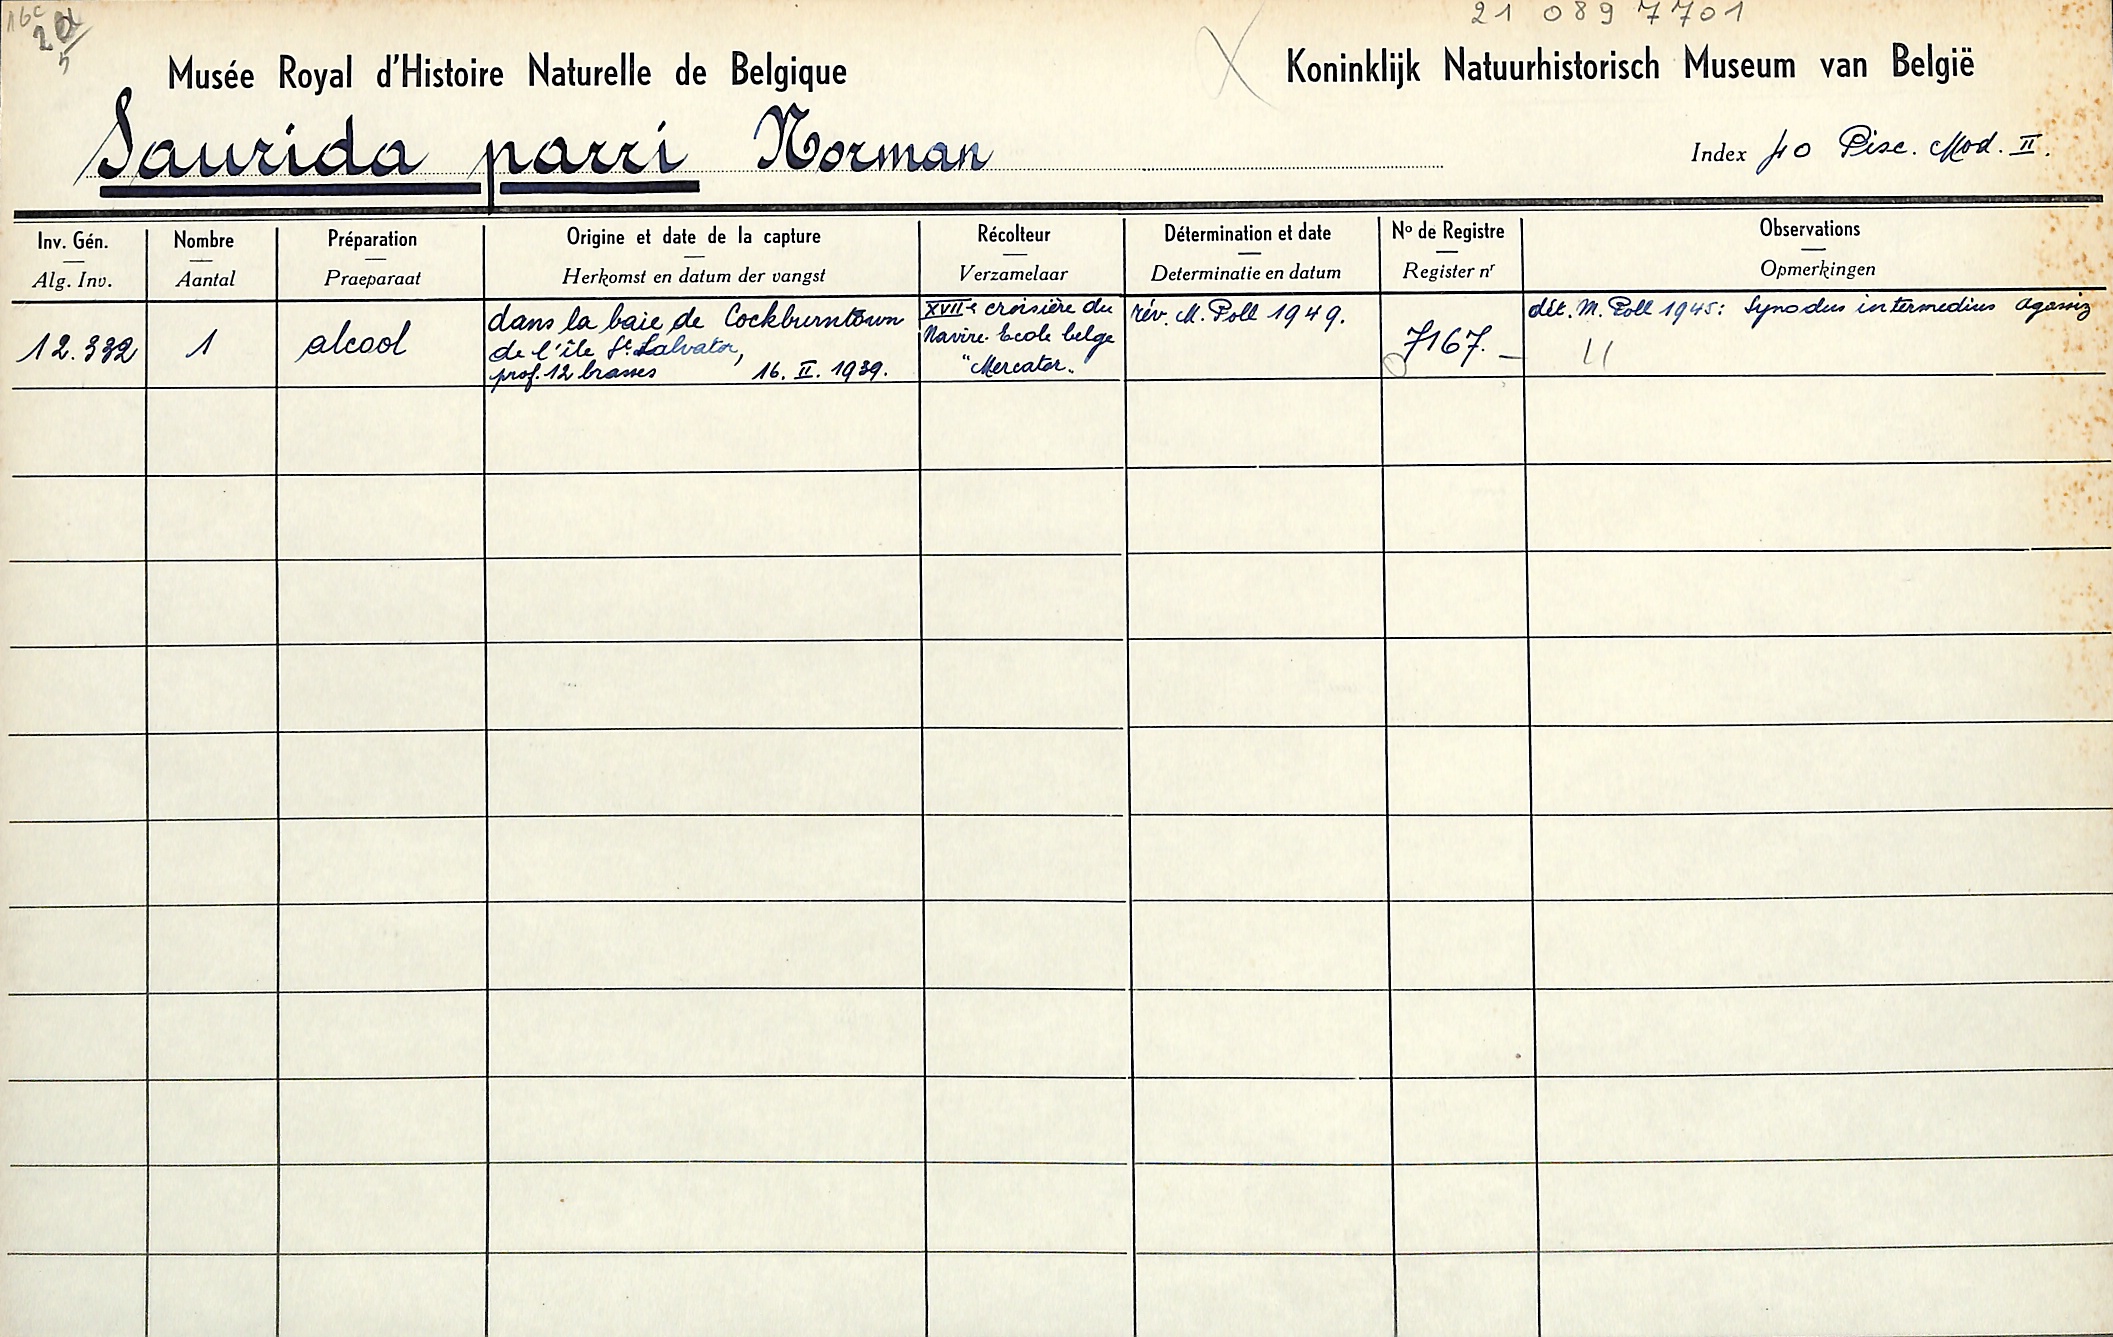 16c
21 089 7701
Musée Royal d'Histoire Naturelle de Belgique
Koninklijk Natuurhistorisch Museum van België
Saurida parri Norman
Index 40 Pisc. Mod. II.
Inv. Gén. Nombre Préparation Origine et date de la capture Récolteur Détermination et date No de Registre Observations
Alg. Inv. Aantal Praeparaat Herkomst en datum der vangst Verzamelaar Determinatie en datum Register nr Opmerkingen
12.332 1 alcool
dans la baie de Cockburntown
de l'île St. Salvator,
prof. 12 brasses 16. II. 1939.
XVIIe croisière du
Navire-Ecole belge
"Mercator"
rév. M. Poll 1949.
7167.
dét. M. Poll 1945: Synodus intermedius Agassiz